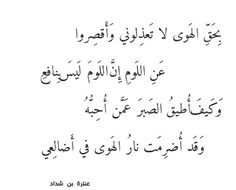 بِحَقِّ الهَوى لا تَعذِلوني وَأَقصِروا
عَنِ اللَومِ إِنَّ اللَومَ لَيسَ بِنافِعِ
وَكَيفَ أُطيقُ الصَبرَ عَمَّن أُحِبُّهُ
وَقَد أُضرِمَت نارُ الهَوى في أَضالِعي
عنترة بن شداد